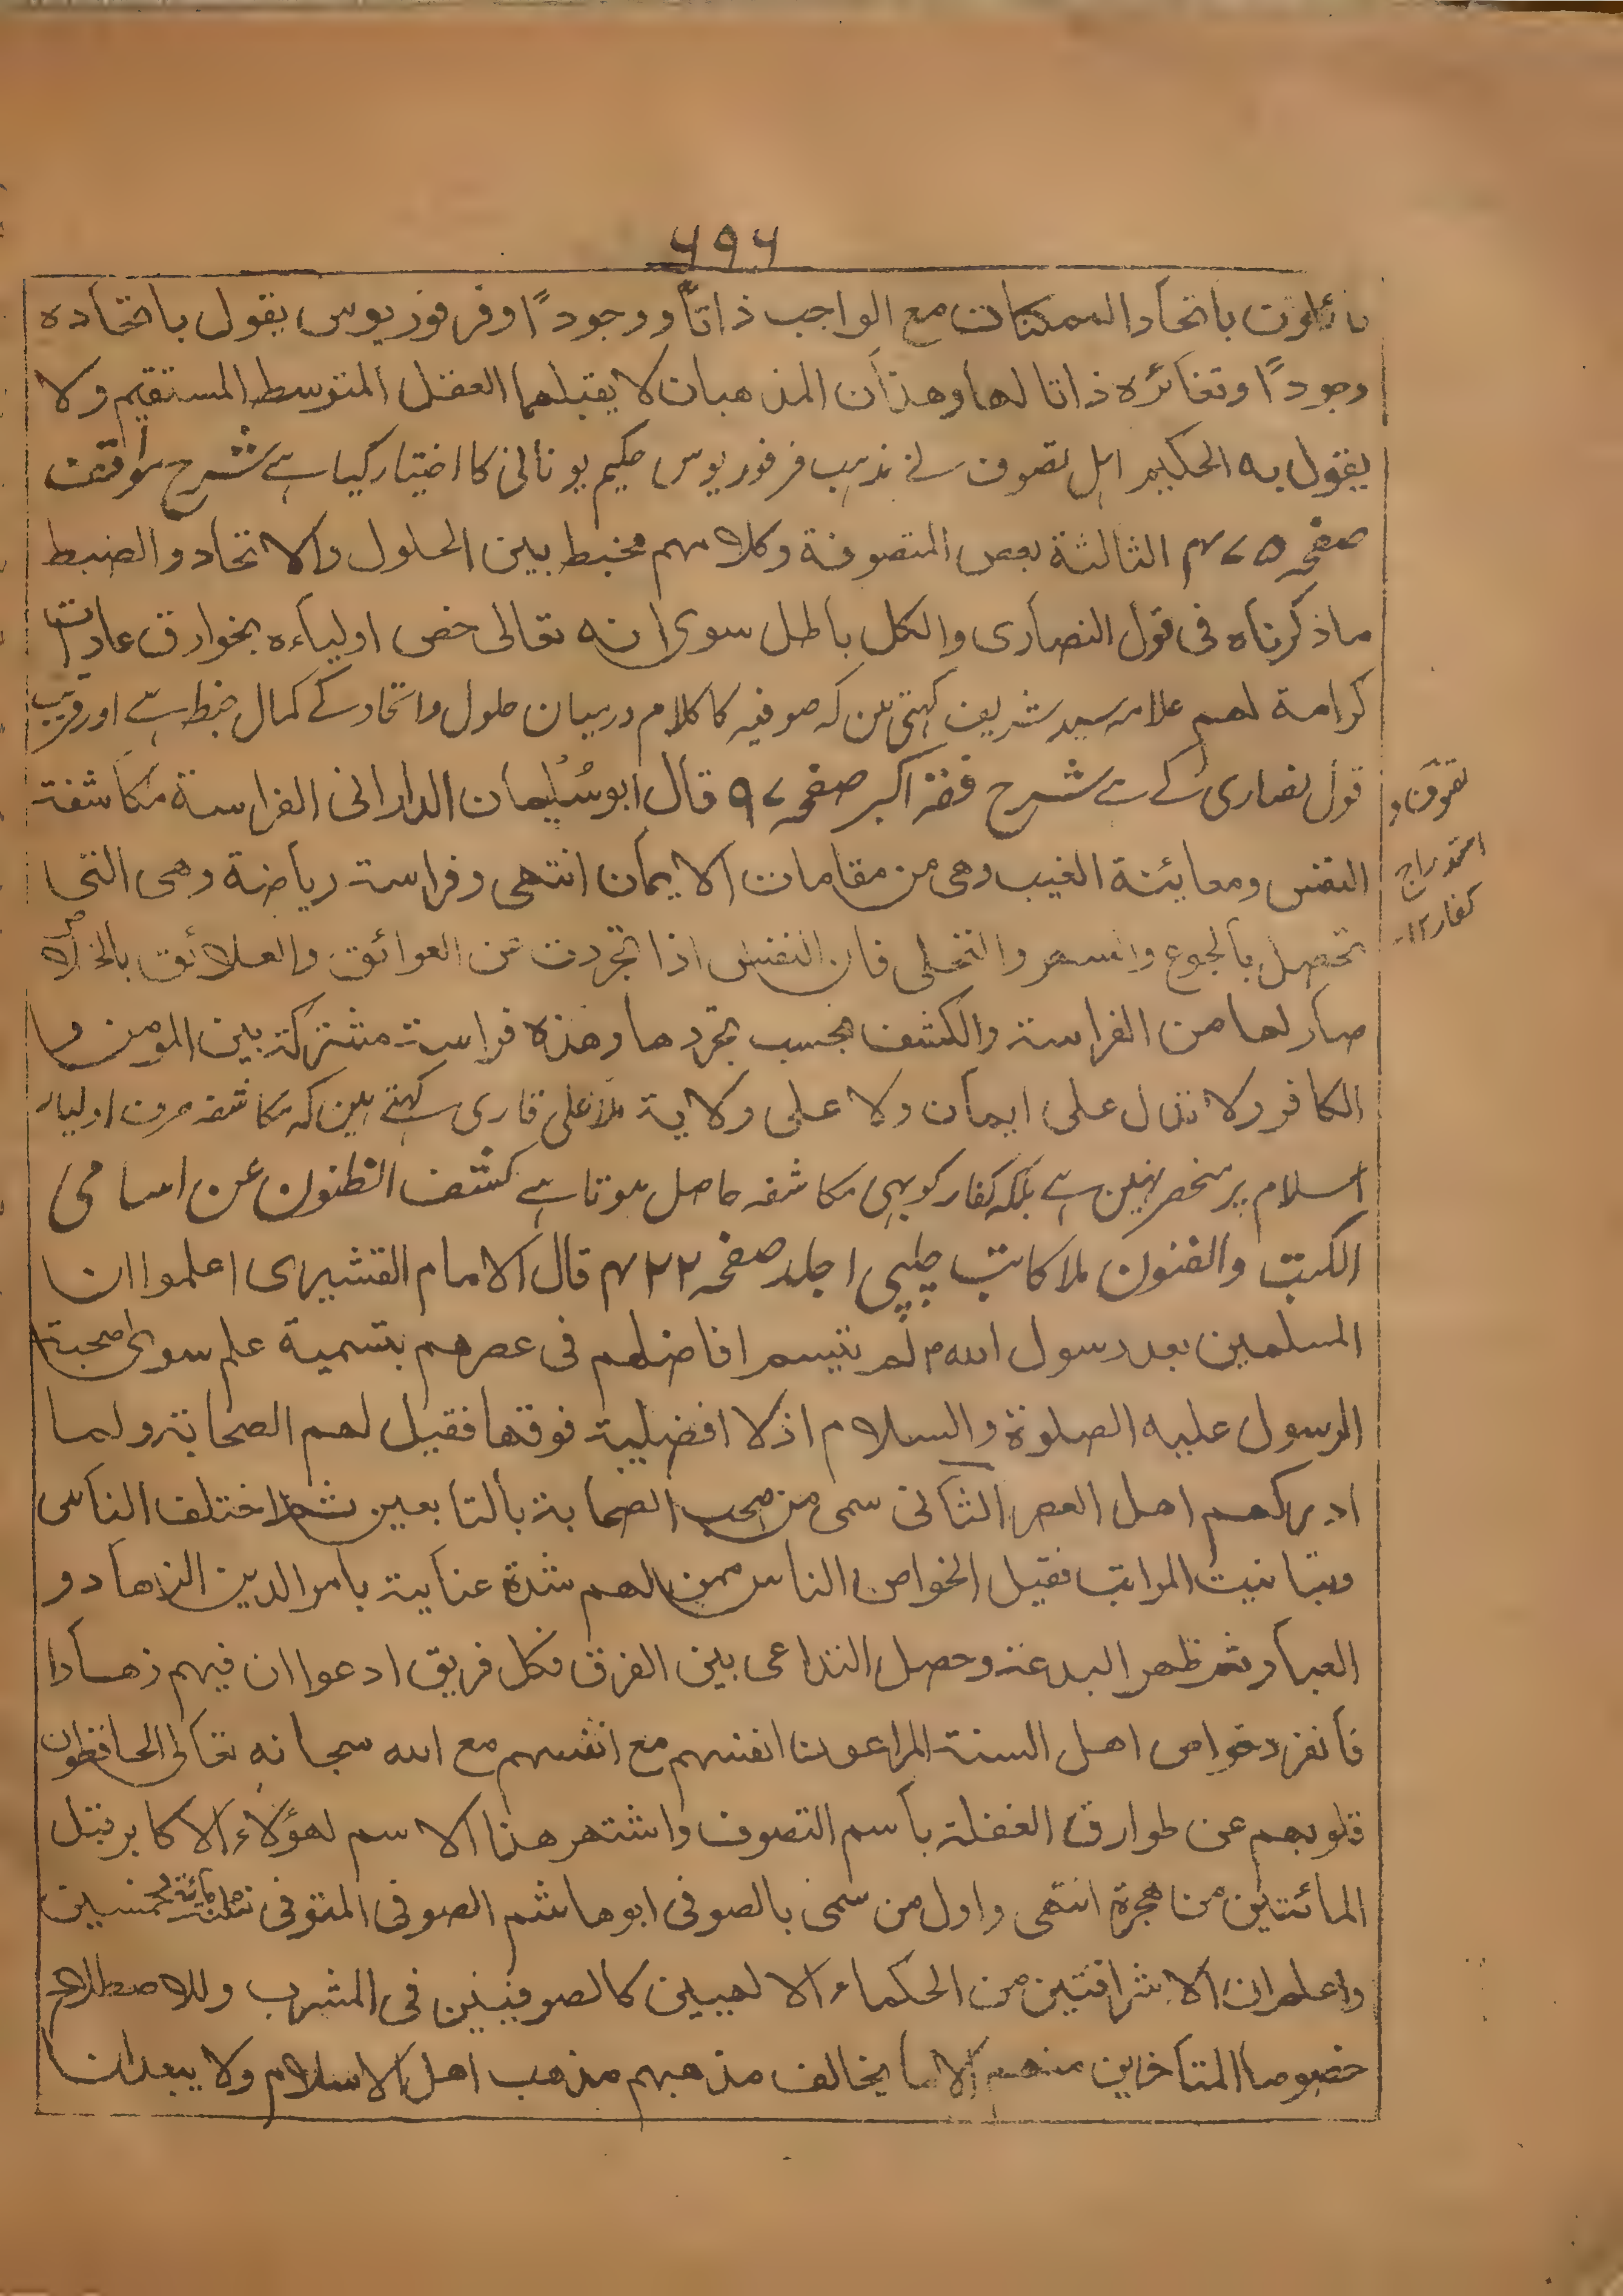 ۶۹۶
قائلون باتحاد الممكنات مع الواجب ذاتاً ووجوداً وفرفوریوس یقول باتحاده
وجوداً وتغائره ذاتا لها وهذان المذهبان لا یقبلهما العقل المتوسط المستقیم ولا
یقول به الحکیم اہل تصوف نے مذہب فرفوریوس حکیم یونانی کا اختیار کیا ہے شرح مواقف
صفحہ ۴۷۵ الثالثة بعض المتصوفة وکلامهم مخبط بین الحلول والاتحاد والضبط
ماذکرناه فی قول النصاری والکل باطل سوی انه تعالی خص اولیاءه بخوارق عادات
کرامة لهم علامہ سید شریف کہتی ہین کہ صوفیہ کا کلام درمیان حلول واتحاد کے کمال خبط ہے اور قریب
قول نصاری کے ہے شرح فقہ اکبر صفحہ ۹۷ قال ابوسُلیمان الدارانی الفراسة مکاشفة
النفس ومعاینة الغیب وهی من مقامات الایمان انتهی وفراسة ریاضة وهی التی
تحصل بالجوع والسهر والتخلی فان النفس اذا تجردت عن العوائق والعلائق بالخلائق
صار لها من الفراسة والکشف بحسب تجردها وهذه فراسة مشترکة بین المومن و
الکافر ولا تدل علی ایمان ولا علی ولایة ملا علی قاری کہتے ہین کہ مکاشفہ صرف اولیاء
اسلام پر منحصر نہین ہے بلکہ کفار کو بہی مکاشفہ حاصل ہوتا ہے کشف الظنون عن اسامی
الکتب والفنون ملا کاتب چلپی ۱ جلد صفحہ ۴۲۲ قال الامام القشیری اعلموا ان
المسلمین بعد رسول اللہ م لم یتسم افاضلهم فی عصرهم بتسمیة علم سوی صحبة
الرسول علیه الصلوة والسلام اذ لا افضلیة فوقها فقیل لهم الصحابة ولما
ادرکهم اهل العصر الثانی سمی من صحب الصحابة بالتابعین ثم اختلف الناس
وتباینت المراتب فقیل لخواص الناس ممن لهم شدة عنایة بامر الدین الزهاد و
العباد ثم ظهر البدعة وحصل التداعی بین الفرق فکل فریق ادعوا ان فیهم زهادا
فانفرد خواص اهل السنة المراعون انفسهم مع انفسهم مع الله سبحانه تعالی الحافظون
قلوبهم عن طوارق الغفلة باسم التصوف واشتهر هذا الاسم لهؤلاء الاکابر قبل
المائتین من هجرة انتهی واول من سمی بالصوفی ابوهاشم الصوفی المتوفی سنة مائة وخمسین
واعلم ان الاشراقیین من الحکماء الالهیین کالصوفیین فی المشرب والاصطلاح
خصوصا المتاخرین منهم الا ما یخالف مذهبهم مذهب اهل الاسلام ولا یبعد ان
تصوف و
استدراج
کفار ۱۲